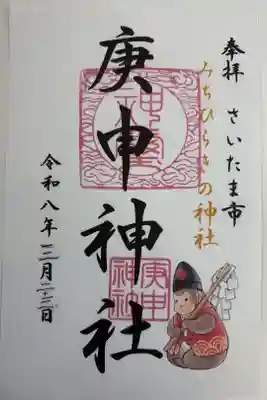 奉拝 さいたま市
みちひらきの神社
庚申神社
庚申
神社
令和八年